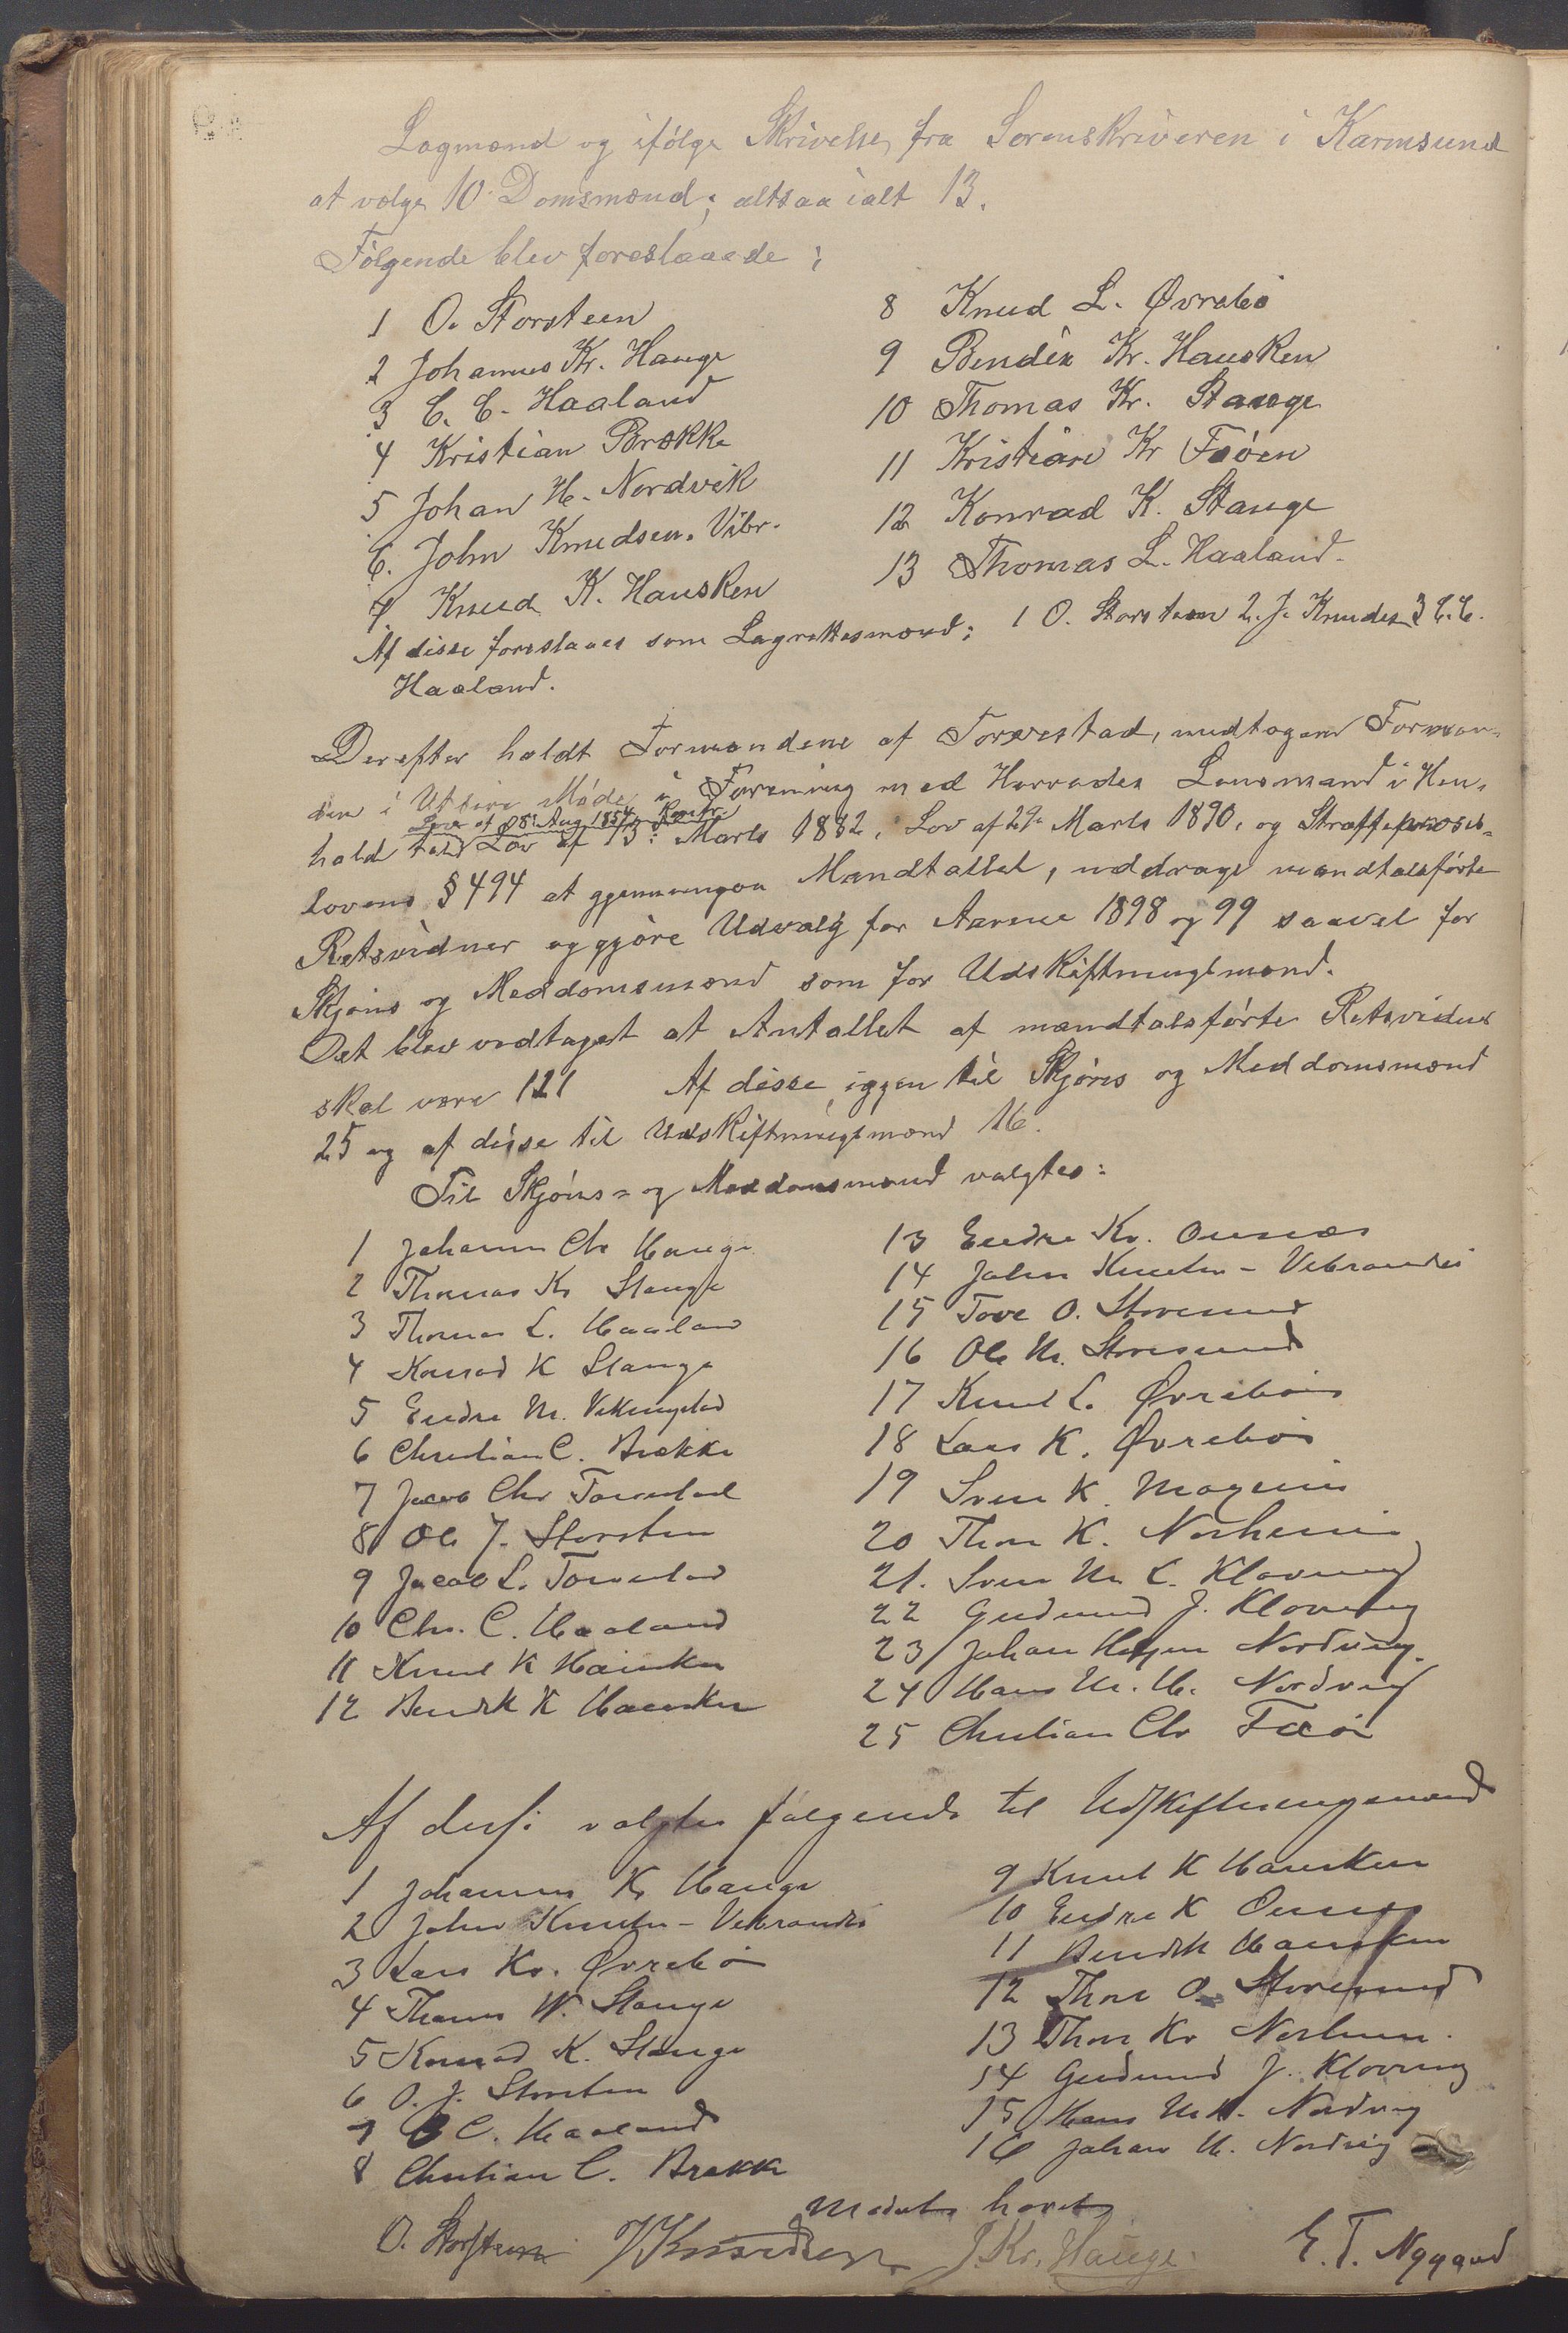 Lagmænd og ifølge Skrivelse fra Sorenskriveren i Karmsund
at vælge 10 Domsmænd; altsaa ialt 13.
Følgende blev foreslaaede:
1 O. Storsteen
2 Johannes Kr. Hauge
3 C. C. Haaland
4 Kristian Brække
5 Johan H. Nordvik
6. John Knudsen. Vibr.
7 Knud K. Hausken
8 Knud L. Øvrebø
9 Bendix Kr. Hausken
10 Thomas Kr. Stange
11 Kristian Kr Fæøen
12 Konrad K. Stange
13 Thomas L. Haaland.
Af disse foreslaaes som Lagrettesmænd: 1 O. Storsteen 2. J. Knudsen 3 C. C.
Haaland.
Derefter holdt Formændene af Torvestad, undtagen Forman-
den i Utsire Møde i Forening med Herredes Lensmand i Hen-
Lov af 28. Aug. 1854
hold til Lov af 13. Marts 1882, Lov af 29. Marts 1890, og Straffeproses-
lovens § 494 at gjennemgaa Mandtallet, uddrage mandtalsførte
Retsvidner og gjøre Udvalg for Aarene 1898 og 99 saavel for
Skjøns og Meddomsmænd som for Udskiftningsmænd.
Det blev vedtaget at Antallet af mandtalsførte Retsvidner
skal være 121 Af disse igjen til Skjøns og Meddomsmænd
25 og af disse til Udskiftningsmænd 16.
Til Skjøns- og Meddomsmænd valgtes:
1 Johannes Chr Hauge
2 Thomas Kr Stange
3 Thomas L. Haaland
4 Konrad K Stange
5 Endre M. Vikingstad
6 Christian C. Brække
7 Jacob Chr Torvestad
8 Ole J. Storsten
9 Jacob L. Torvestad
10 Chr. C. Haaland
11 Knud K Hausken
12 Bendik K Hausken
13 Endre Kr. Osnes
14 John Knutsen - Vebrandsø
15 Tore O. Storesund
16 Ole M. Storesund
17 Knud L. Øvrebø
18 Lars K. Øvrebø
19 Sven K.
20 Thore K. Norheim
21. Sven M. L. Klovning
22 Gudmund J. Klovning
23 Johan Nordvig.
24 Hans M. H. Nordvig
25 Christian Chr Fæø
Af disse valgtes følgende til Udskiftningsmænd
1 Johannes Kr Hauge
2 John Knutsen - Vebrandsø
3 Lars Kr. Øvrebø
4 Thomas Stange
5 Konrad K. Stange
6 O. J. Storsten
7 C. C. Haaland
8 Christian C. Brække
9 Knud K Hausken
10 Endre K Osnes
11 Bendik Hausken
12 Thore O. Storesund
13 Thore Kr Norheim.
14 Gudmund J. Klovning
15 Hans M. H. Nordvig
16 Johan H. Nordvig
Mødet hævet
O. Storsteen J Knudsen J. Kr. Hauge. E. T. Nygaard